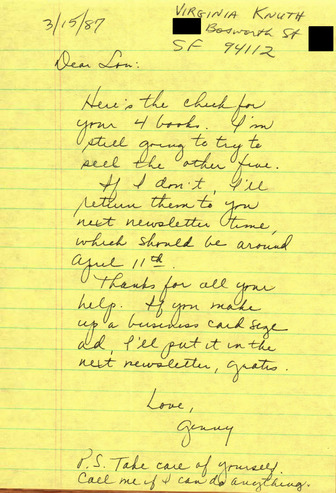 3/15/87
VIRGINIA KNUTH
Bosworth St
SF 94112
Dear Lou:
Here's the check for
your 4 books. I'm
still going to try to
sell the other five.
If I don't, I'll
return them to you
next newsletter time,
which should be around
April 11th.
Thanks for all your
help. If you make
up a business card size
ad, I'll put it in the
next newsletter, gratis.
Love,
Ginny
P.S. Take care of yourself.
Call me if I can do anything.